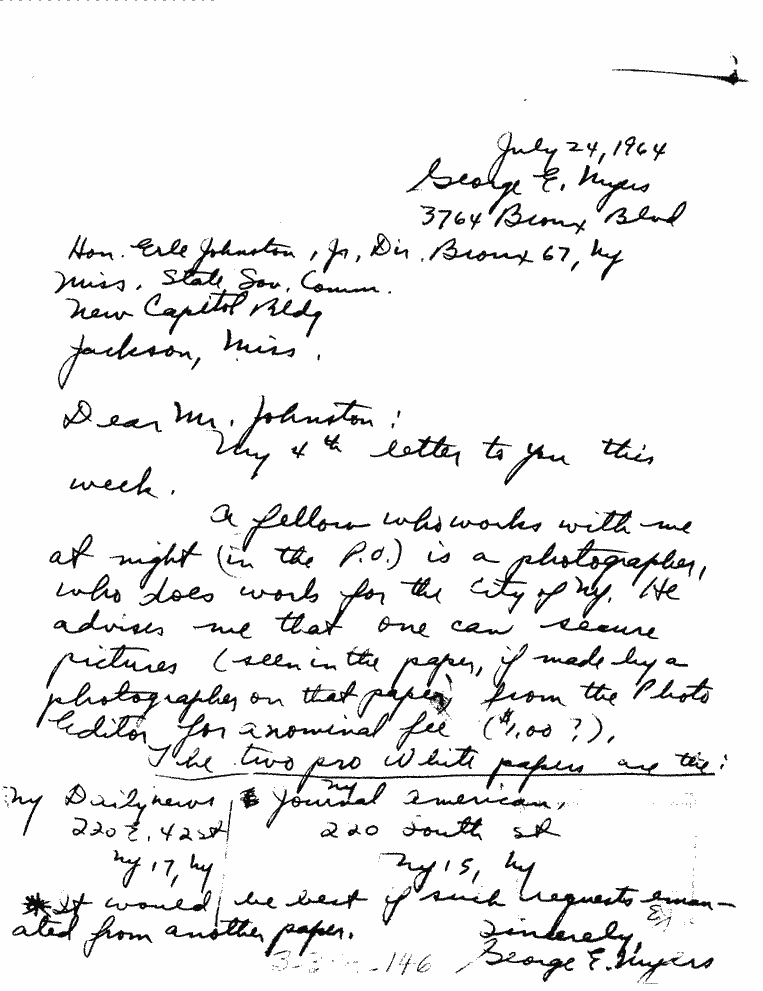 July 24, 1964
George E. Myers
3764 Bronx Blvd
Hon. Erle Johnston, Jr, Dir. Bronx 67, Ny
Miss. State Sov. Comm.
New Capitol Bldg
Jackson, Miss.
Dear Mr. Johnston:
My 4th letter to you this
week.
A fellow who works with me
at night (in the P.O.) is a photographer,
who does work for the City of Ny. He
advises me that one can secure
pictures (seen in the paper, if made by a
photographer on that paper) from the Photo
Editor for a nominal fee ($1.00?).
The two pro White papers are the:
Ny Daily news & Ny Journal american,
220 E. 42 st 220 South st
Ny 17, Ny Ny 15, Ny
* It would be best if such requests eman-
ated from another paper. Sincerely,
George E. Myers